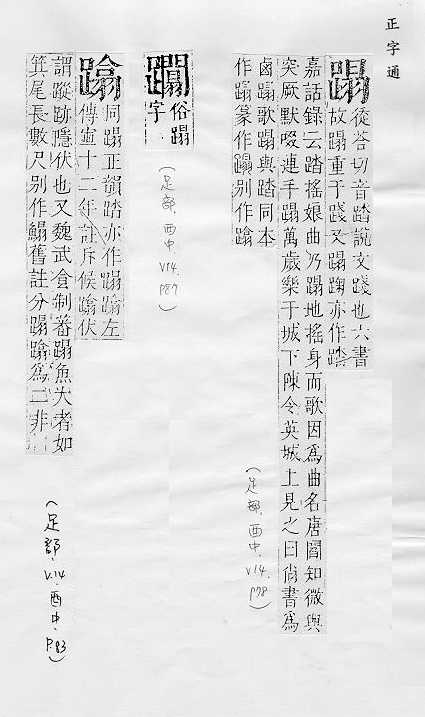 正字通
蹋
徒荅切音踏說文踐也六書
故蹋重于踐又蹋踘亦作蹹
嘉話錄云踏搖娘曲乃蹋地搖身而歌因爲曲名唐閻知微與
突厥默啜連手蹋萬歲樂于城下陳令英城上見之曰尚書爲
鹵蹋歌蹋與踏同本
作蹋篆作蹋別作蹹
(足部,酉中,V14,P78)
躢
俗蹋
字
(足部,酉中,V14,P87)
蹹
同蹋正韻踏亦作蹋蹹左
傳宣十二年註斥候蹹伏
謂蹤跡隱伏也又魏武食制蕃蹋魚大者如
箕尾長數尺別作鰨舊註分蹋蹹爲二非
(足部,V.14 酉中 P.83)